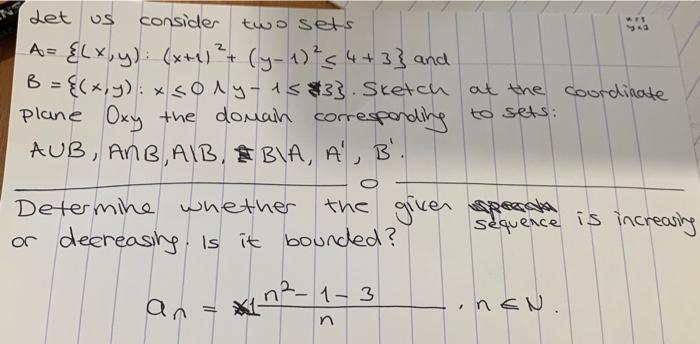 Let us consider two sets
x=1
y=3
A = {(x,y): (x+1)²+ (y-1)² ≤ 4+3} and
B = {(x,y): x ≤ 0 ∧ y - 1 ≤ 3}. Sketch at the coordinate
plane Oxy the domain corresponding to sets:
A∪B, A∩B, A\B, B\A, A', B'.
Determine whether the given sequence is increasing
or decreasing. Is it bounded?
aₙ = 1n²- 1 - 3 / n , n ∈ N.